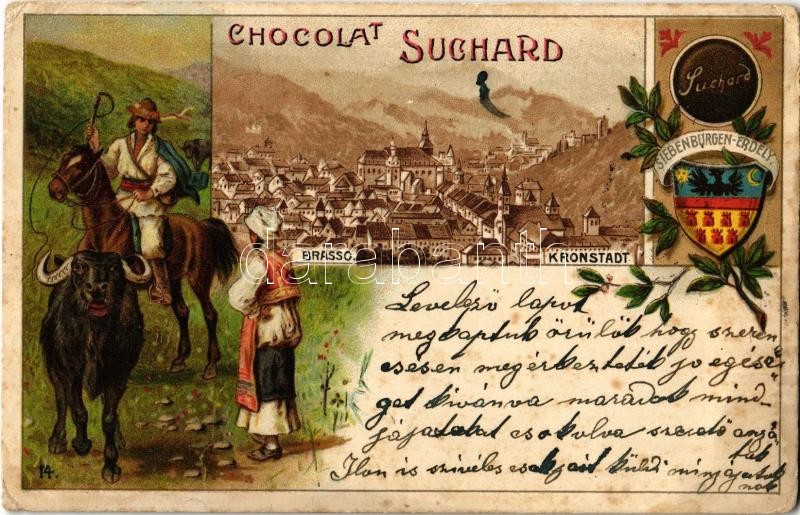 CHOCOLAT SUCHARD
Suchard
SIEBENBÜRGEN-ERDÉLY
BRASSÓ.
KRONSTADT
darabanth.com
Levelező lapot
megkaptuk örülök hogy szeren
csésen megérkeztetek jo egész
get kivánva maradok mind-
jájatokat csokolva szerető anyá
tok
Ilon is szivéles csokjait küldi minjájatok
nak
14.